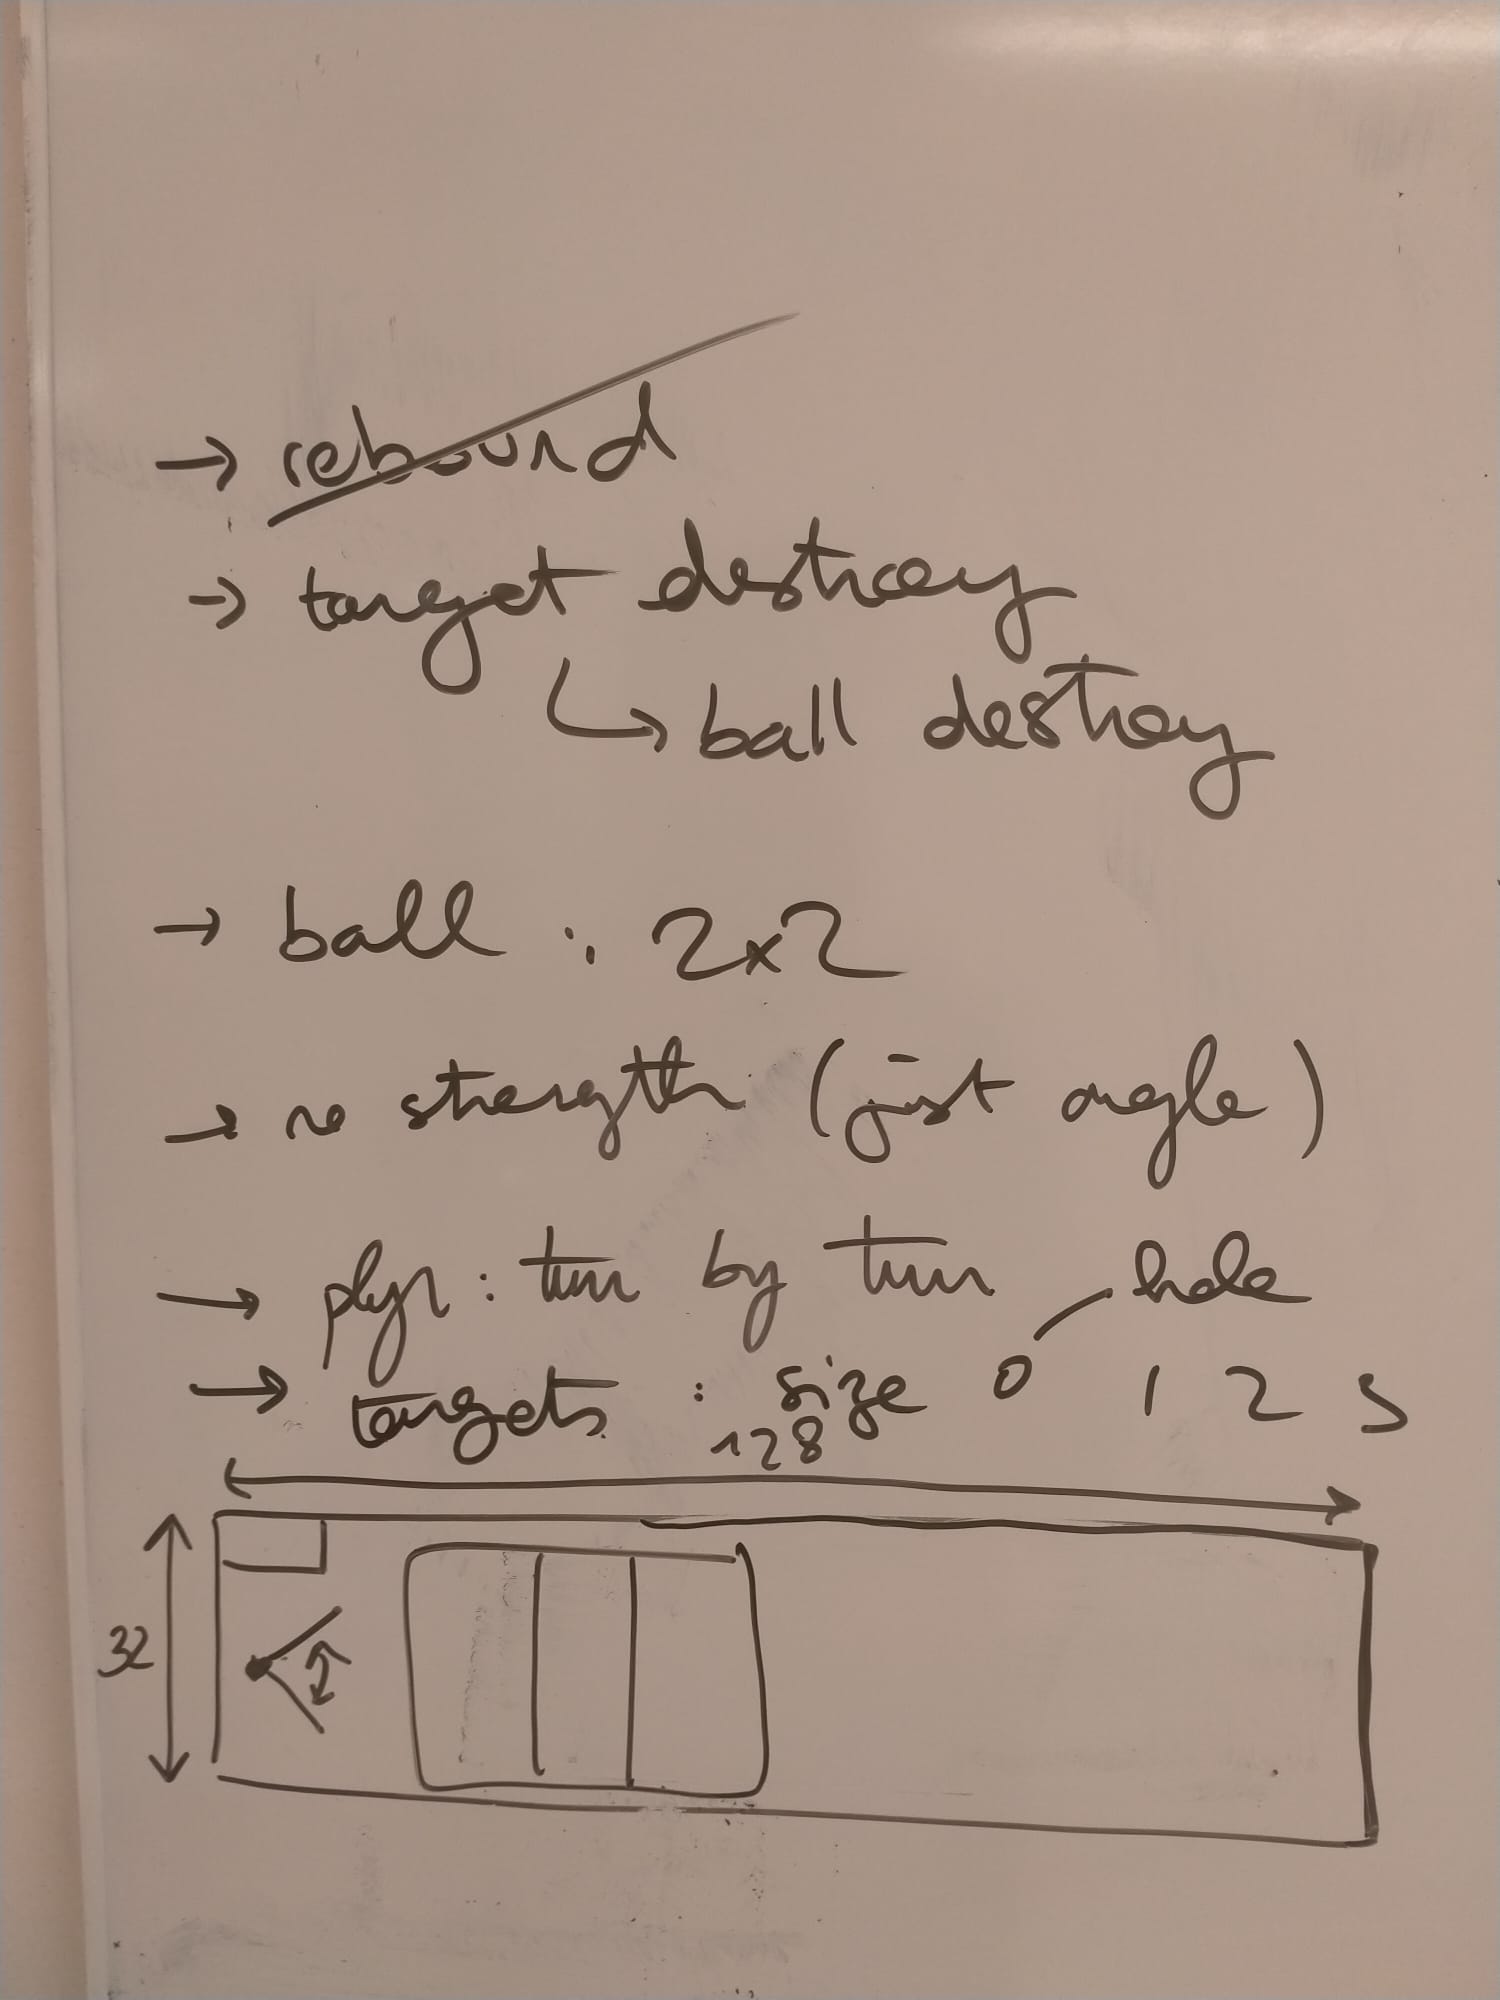 → rebound
→ target destroy
↳ ball destroy
→ ball : 2x2
→ no strength (just angle)
→ plyr : turn by turn
hole
→ targets : size 0 1 2 3
128
32